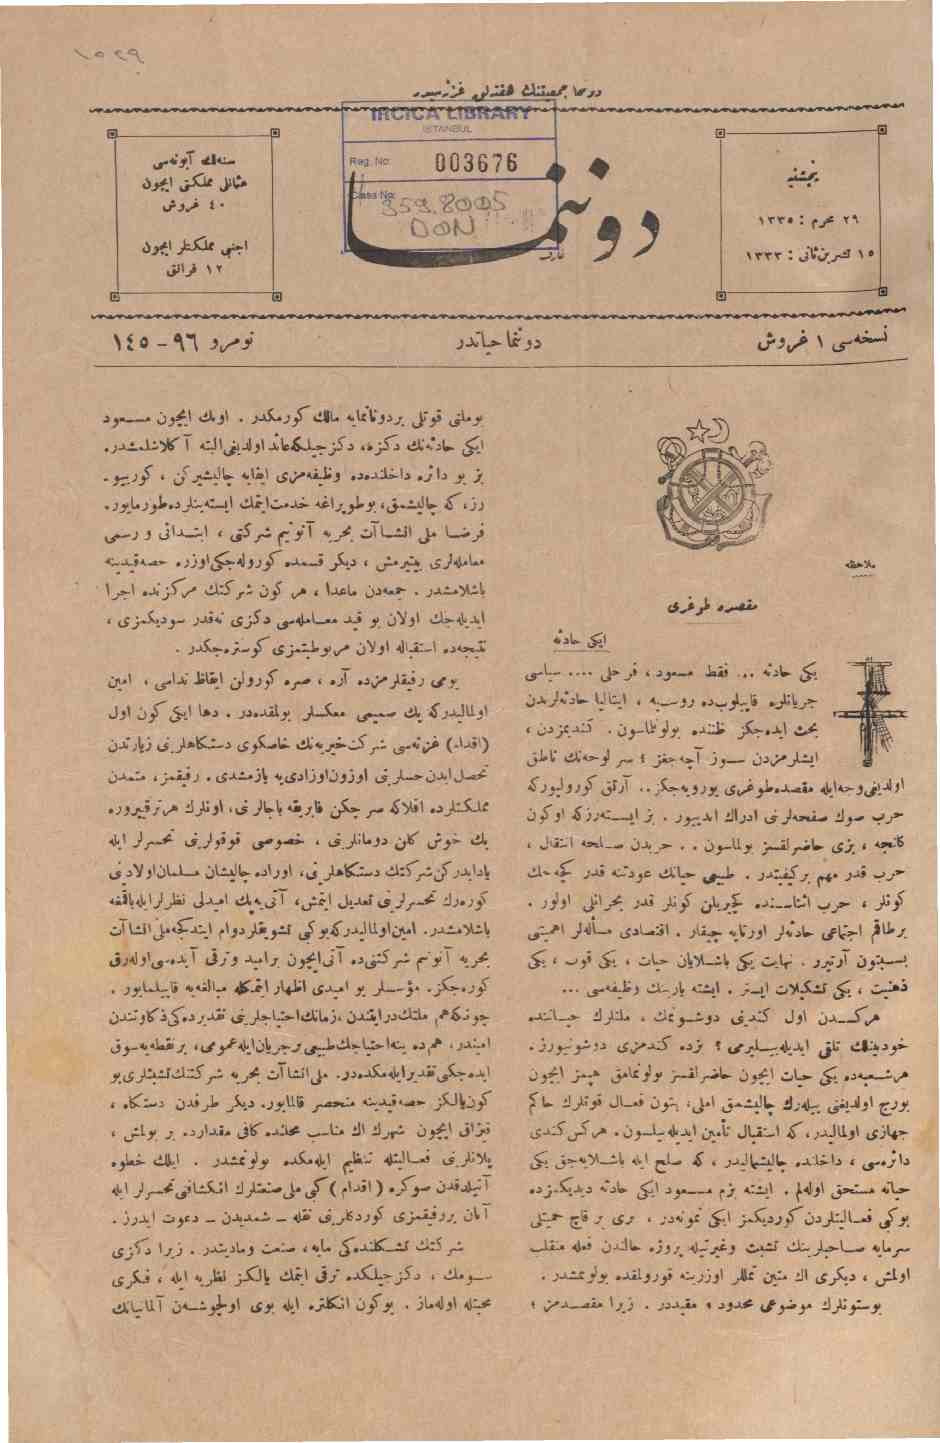 ١٥٢٩
دوننما جمعیتنك هفته‌لق غزته‌سیدر
IRCICA LIBRARY
ISTANBUL
Reg. No: 003676
Class No: 359.8005
DON
پنجشنبه
٢٩ محرم : ١٣٣٥
١٥ تشرین ثانی : ١٣٣٢
دوننما
عارف
سنه‌لك آبونه‌سی
عثمانلی مملكتی ایچون
٤٠ غروش
اجنبی مملكتلر ایچون
١٢ فرانق
نسخه‌سی ١ غروش
دوننما حیاتدر
نومرو ٩٦ – ١٤٥
ملاحظه
مقصده طوغری
ایكی حادثه
یكی حادثه ... فقط مسعود ، فرحلی .... سیاسی
جریانلره قاپیلوبده روسیه ، ایتالیا حادثه‌لرندن
بحث ایده‌جكز ظننده بولونماسون . كندیمزدن ،
ایشلرمزدن سوز آچه‌جغز ؛ سر لوحه‌نك ناطق
اولدیغی وجه‌ایله مقصده طوغری یورویه‌جكز .. آرتق كورولیوركه
حرب صوك صفحه‌لرنی ادراك ایدییور . بز ایسته‌رزكه اوكون
كلنجه ، بزی حاضرلقسز بولماسون .. حربدن صلحه انتقال ،
حرب قدر مهم بركیفیتدر . طبیعی حیاتك عودتنه قدر كچه‌جك
كونلر ، حرب اثناسنده كچیریلن كونلر قدر بحرانلی اولور .
برطاقم اجتماعی حادثه‌لر اورتایه چیقار . اقتصادی مسأله‌لر اهمیتی
بسبتون آرتیرر . نهایت یكی باشلایان حیات ، یكی قوت ، یكی
ذهنیت ، یكی تشكیلات ایستر . ایشته یارینك وظیفه‌سی ...
هركسدن اول كندینی دوشونمك ، ملتلرك حیاتنده
خودبینلك تلقی ایدیله‌بیلیرمی ؟ بزده كندمزی دوشونیورز .
هرشعبه‌ده یكی حیات ایچون حاضرلقسز بولونمامق هپمز ایچون
بورج اولدیغنی بیله‌رك چالیشمق املی ، بتون فعال قوتلرك حاكم
جهازی اولمالیدر ، كه استقبال تأمین ایدیله‌بیلسون . هركس كندی
دائره‌سی ، داخلنده چالیشمالیدر ، كه صلح ایله باشلایه‌جق یكی
حیاته مستحق اوله‌لم . ایشته بزم مسعود ایكی حادثه دیدیكمزده
بوكبی فعالیتلردن كوردیكمز ایكی نمونه‌در ، بری بر قاچ حمیتلی
سرمایه صاحبلرینك تشبث وغیرتیله پروژه حالندن فعله منقلب
اولمش ، دیكری اك متین تمللر اوزرینه قورولمقده بولونمشدر .
بوستونلرك موضوعی محدود و مقیددر . زیرا مقصدمز ؛
بوملتی قوتلی بردوننمایه مالك كورمكدر . اونك ایچون مسعود
ایكی حادثه‌نك دكزه ، دكزجیلكه عائد اولدیغی البته آكلاشلمشدر .
بز بو دائره داخلنده‌ده وظیفه‌مزی ایفایه چالیشیركن ، كورییو-
رز ، كه چالیشمق ، بوطوپراغه خدمت ایتمك ایسته‌ینلرده طورمایور .
فرضا ملی انشاآت بحریه آنونیم شركتی ، ابتدائی و رسمی
معامله‌لری بیتیرمش ، دیكر قسمده كوروله‌جكی اوزره حصه قیدینه
باشلامشدر . جمعه‌دن ماعدا ، هر كون شركتك مركزنده اجرا
ایدیله‌جك اولان بو قید معامله‌سی دكزی نه‌قدر سودیكمزی ،
نتیجه‌ده استقباله اولان مربوطیتمزی كوستره‌جكدر .
یومی رفیقلرمزده آره ، صره كورولن ایقاظ نداسی ، امین
اولمالیدركه پك صمیمی معكسلر بولمقده‌در . دها ایكی كون اول
(اقدام) غزته‌سی شركت خیریه‌نك خاصكوی دستكاهلرینی زیارتدن
تحصل ایدن حسلرینی اوزون اوزادی یه یازمشدی . رفیقمز ، متمدن
مملكتلرده افلاكه سر چكن فابریقه باجالری ، اونلرك هر ترقیپروره
پك خوش كلن دومانلرینی ، خصوصی قوقولرینی تحسرلر ایله
یادایدركن شركتك دستكاهلرینی ، اوراده چالیشان مسلمان اولادینی
كوره‌رك تحسرلرینی تعدیل ایتمش ، آتی‌یه پك امیدلی نظرلرایله باقمغه
باشلامشدر . امین اولمالیدركه بوكبی تشویقلر دوام ایتدكجه ملی انشاآت
بحریه آنونیم شركتنی‌ده آتی ایچون برامید وترقی آبده‌سی اوله‌رق
كوره‌جكز . مؤسسلر بو امیدی اظهار ایتمكله مبالغه‌یه قاپیلمایور .
چونكه هم ملتك درایتندن ، زمانك احتیاجلرینی تقدیرده‌كی ذكاوتندن
امیندر ، هم‌ده ینه احتیاجك طبیعی برجریان ایله عمومی ، برنقطه‌یه سوق
ایده‌جكی تقدیر ایله‌مكده‌در . ملی انشاآت بحریه شركتنك تشبثلری بو
كون یالكز حصه قیدینه منحصر قالمایور . دیكر طرفدن دستكاه ،
قیزاق ایچون شهرك اك مناسب محلنده كافی مقدارده یر بولمش ،
پلانلرینی فعالیتله تنظیم ایله‌مكده بولونمشدر . ایلك خطوه
آتیلدقدن صوكره ( اقدام ) كبی ملی صنعتلرك انكشافنی تحسرلر ایله
آنان بررفیقمزی كوردكلرینی نقله – شمدیدن – دعوت ایدرز .
شركتك تشكلنده‌كی مایه ، صنعت ومادیتدر . زیرا دكزی
سومك ، دكزجیلكده ترقی ایتمك یالكز نظریه ایله ، فكری
محبتله اوله‌ماز . بوكون انكلتره ایله بوی اولچوشن آلمانیانك